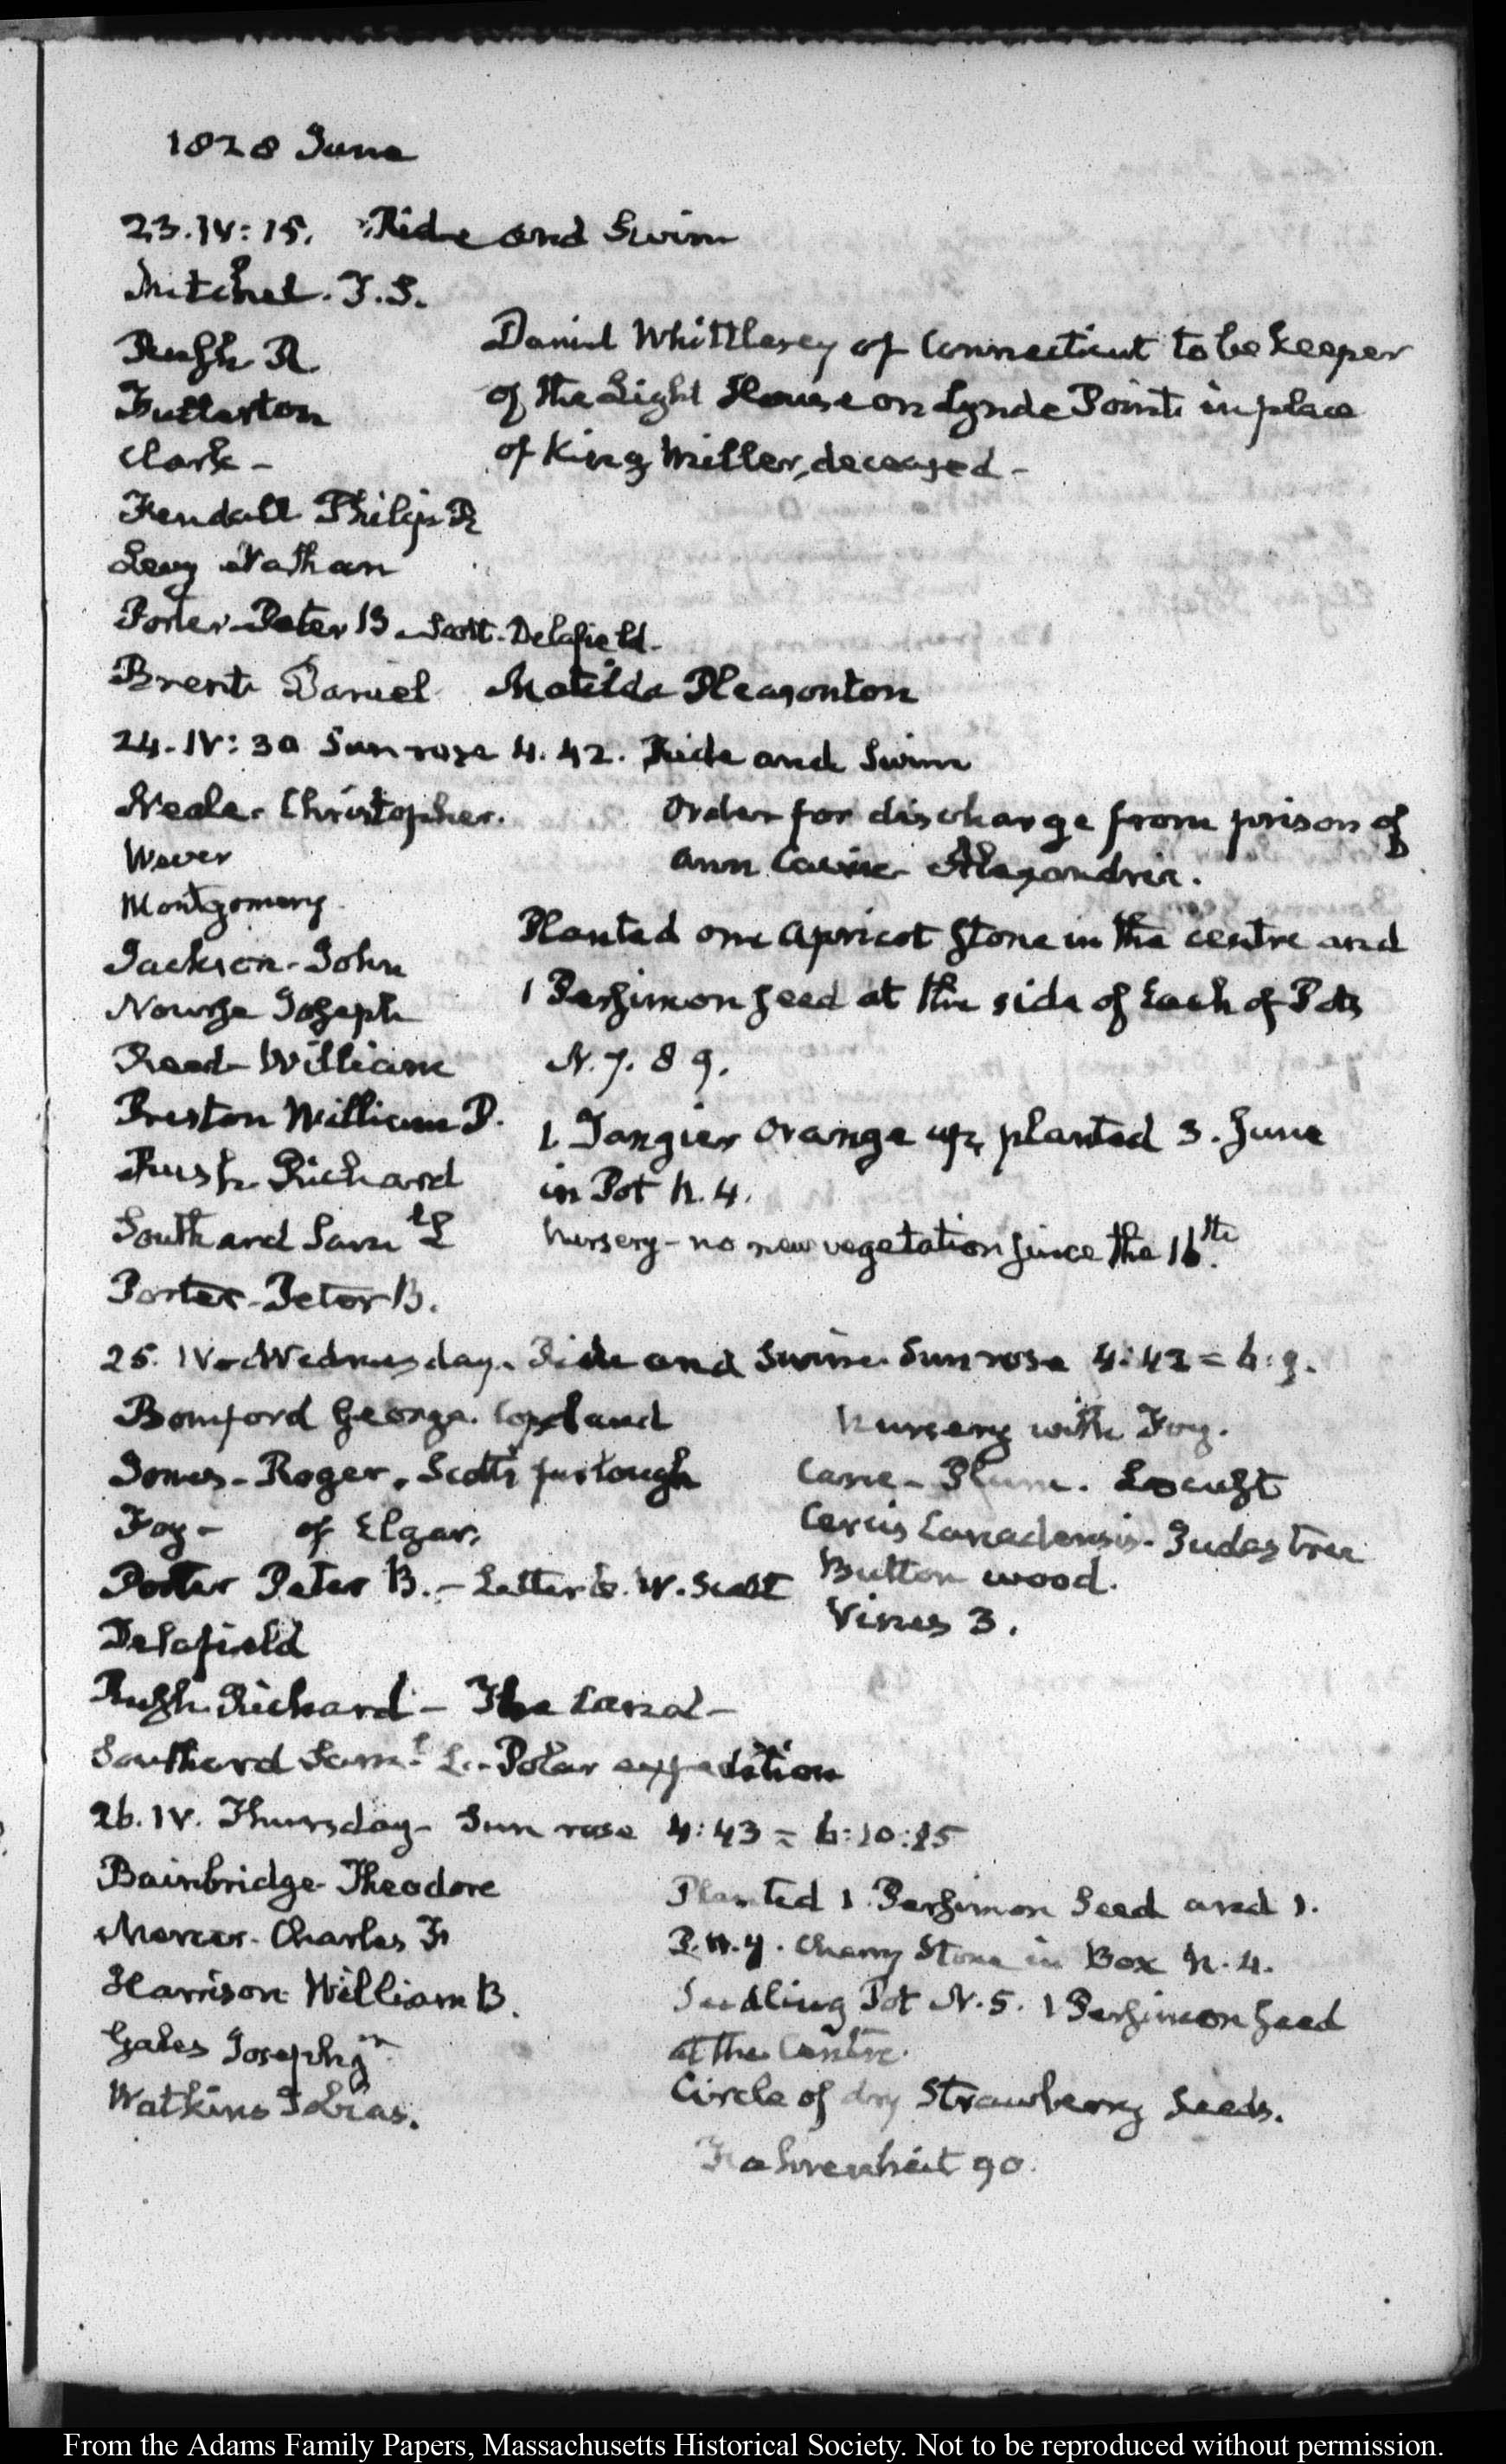 1828 June
23. IV: 15. Ride and Swim
Mitchel. J. S.
Rush R
Fullerton
Clark -
Fendall Philip R
Levy Nathan
Porter - Peter B - Scott. Delafield -
Brent Daniel Matilda Pleasonton
Daniel Whittlesey of Connecticut to be keeper
of the Light House on Lynde Point in place
of King Miller, deceased -
24. IV: 30 Sun rose 4. 42. Ride and Swim
Neale - Christopher.
Wever
Montgomery
Jackson - John
Nourse Joseph
Reed - William
Preston William P.
Rush Richard
Southard Saml L
Porter - Peter B.
Order for discharge from prison of
Ann Alexandria.
Planted one Apricot Stone in the centre and
1 Persimon seed at the side of each of Pots
N. 7. 8 9.
1 Tangier Orange up, planted 3. June
in Pot N. 4.
Nursery - no new vegetation since the 16th.
25. IV. Wednesday. Ride and Swim. Sun rose 4:42 = 6:9.
Bomford George. Copeland
Jones - Roger. Scott's furlough
Foy - of Elgar.
Porter Peter B. - Letter to W. Scott
Delafield
Rush Richard - The Canal -
Southard Saml L. - Polar expedition
Nursery with Foy.
Cane - Plum. Locust
Cercis Canadensis - Judas tree
Button wood.
Vines 3.
26. IV. Thursday - Sun rose 4:43 = 6:10:15
Bainbridge - Theodore
Mercer - Charles F
Harrison William B.
Gales Joseph jr
Watkins Tobias.
Planted 1 Persimon Seed and 1.
Cherry Stone in Box N. 4.
Seedling Pot N. 5. 1 Persimon seed
at the Centre.
Circle of dry Strawberry Seeds.
Fahrenheit 90.
From the Adams Family Papers, Massachusetts Historical Society. Not to be reproduced without permission.